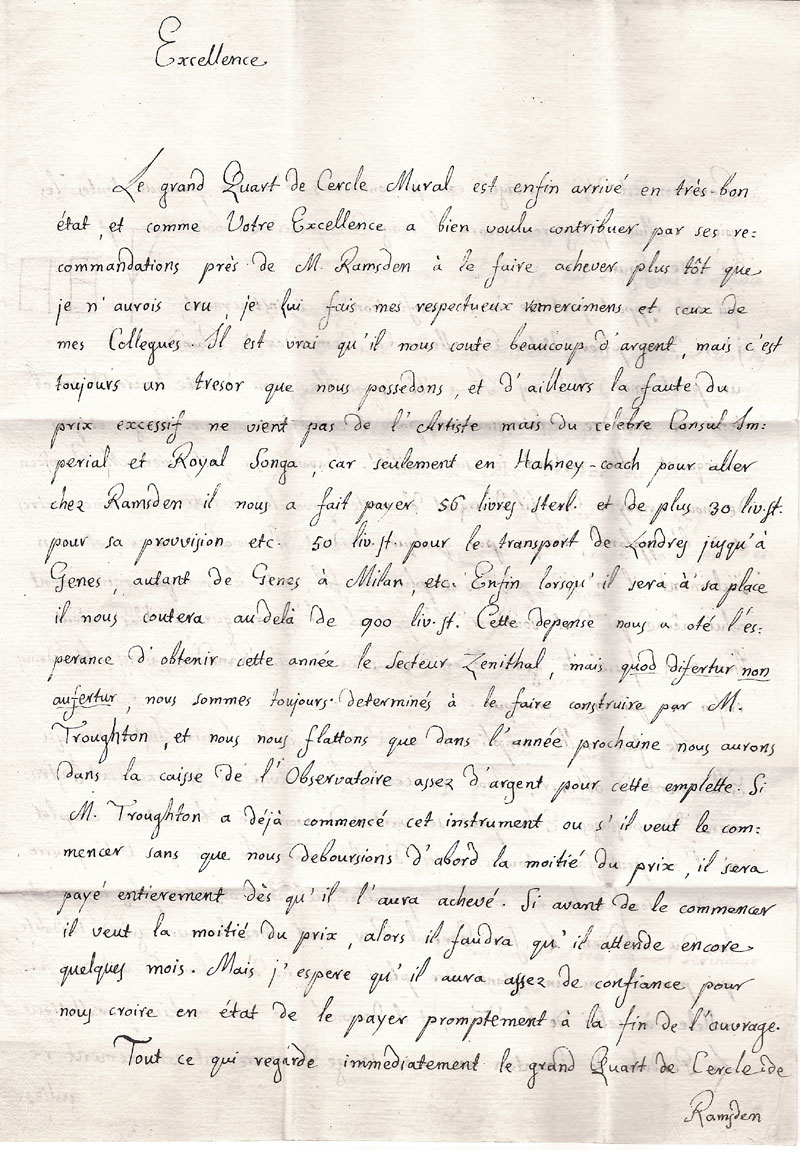 Excellence
Le grand Quart de Cercle Mural est enfin arrivé en très-bon
état, et comme Votre Excellence a bien voulu contribuer par ses re:
commandations près de M. Ramsden à le faire achever plus tôt que
je n'aurois cru, je lui fais mes respectueux remercimens et ceux de
mes Collegues. Il est vrai qu'il nous coute beaucoup d'argent, mais c'est
toujours un tresor que nous possedons, et d'ailleurs la faute du
prix excessif ne vient pas de l'Artiste mais du celebre Consul Im:
perial et Royal Songa, car seulement en Hakney-coach pour aller
chez Ramsden il nous a fait payer 56 livres sterl. et de plus 30 liv.st.
pour sa provvision etc. 50 liv.st. pour le transport de Londres jusqu'à
Genes, autant de Genes à Milan, etc. Enfin lorsqu'il sera à sa place
il nous coutera au delà de 900 liv.st. Cette depense nous a oté l'és:
perance d'obtenir cette année le Secteur Zenithal, mais quod difertur non
aufertur, nous sommes toujours determinés à le faire construire par M.
Troughton, et nous nous flattons que dans l'année prochaine nous aurons
dans la caisse de l'Observatoire assez d'argent pour cette emplette. Si
M. Troughton a déjà commencé cet instrument ou s'il veut le com:
mencer sans que nous deboursions d'abord la moitié du prix, il sera
payé entierement dès qu'il l'aura achevé. Si avant de le commencer
il veut la moitié du prix, alors il faudra qu'il attende encore
quelques mois. Mais j'espere qu'il aura assez de confiance pour
nous croire en état de le payer promptement à la fin de l'ouvrage.
Tout ce qui regarde immédiatement le grand Quart de Cercle de
Ramsden